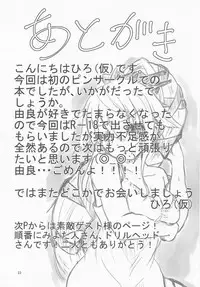 あとがき
こんにちはひろ(仮)です
今回は初のピンサークルでの
本でしたが、いかがだったで
しょうか。
由良が好きでたまらなくなった
ので今回はR-18で出させても
もらいましたが実力不足感が
全然あるので次はもっと頑張り
たいと思います(◎_◎;)
由良・・・ごめんよ!!!!
ではまたどこかでお会いしましょう
ひろ(仮)
次Pからは素敵ゲスト様のページ!
順番にみよた人さん、ドリルヘッド
さんです。二人ともありがとう!